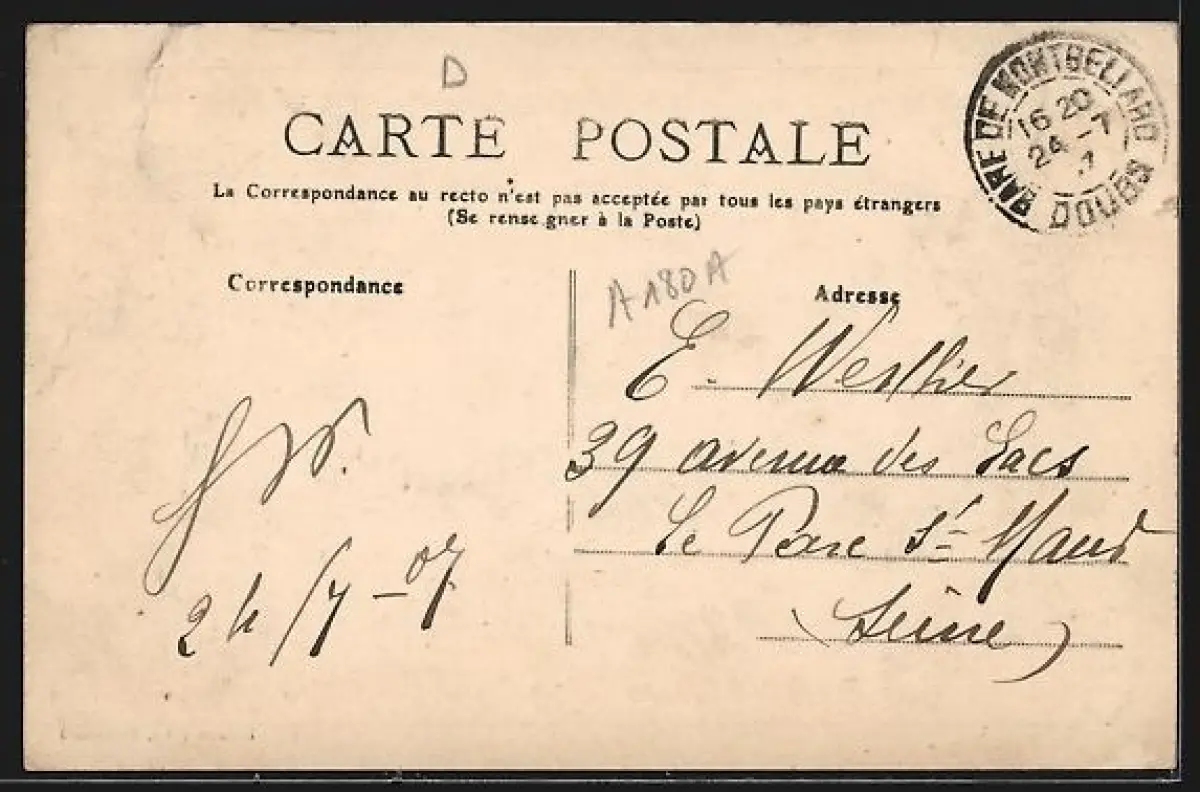 D
CARTE POSTALE
La Correspondance au recto n'est pas acceptée par tous les pays étrangers
(Se renseigner à la Poste)
GARE DE MONTBELIARD
16 20
24 - 7
7
DOUBS
Correspondance
A180A
Adresse
E. Werthier
39 avenue des Lacs
Le Parc St Maur
(Seine)
24/7-07